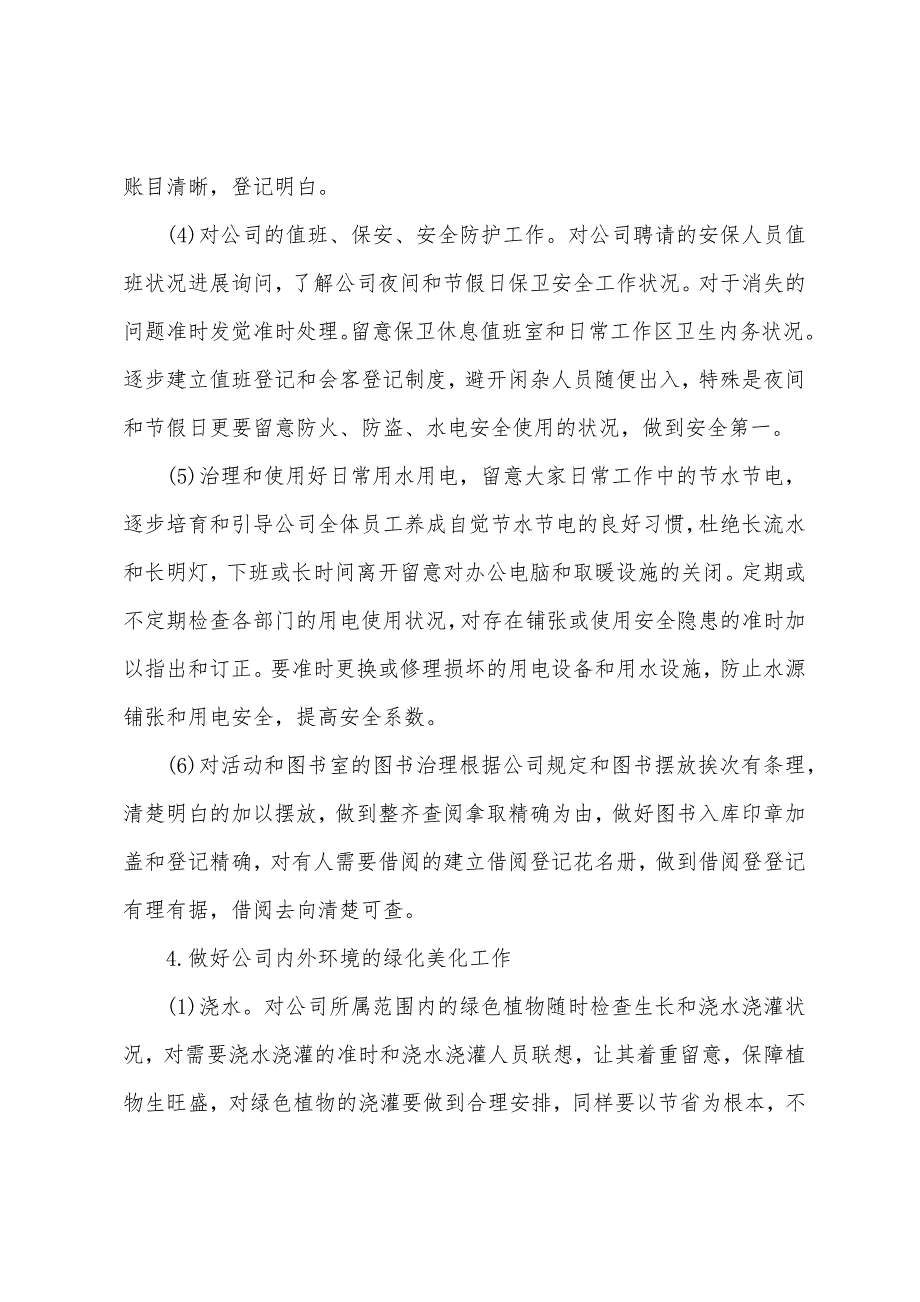 账目清晰，登记明白。
(4)对公司的值班、保安、安全防护工作。对公司聘请的安保人员值
班状况进展询问，了解公司夜间和节假日保卫安全工作状况。对于消失的
问题准时发觉准时处理。留意保卫休息值班室和日常工作区卫生内务状况。
逐步建立值班登记和会客登记制度，避开闲杂人员随便出入，特殊是夜间
和节假日更要留意防火、防盗、水电安全使用的状况，做到安全第一。
(5)治理和使用好日常用水用电，留意大家日常工作中的节水节电，
逐步培育和引导公司全体员工养成自觉节水节电的良好习惯，杜绝长流水
和长明灯，下班或长时间离开留意对办公电脑和取暖设施的关闭。定期或
不定期检查各部门的用电使用状况，对存在铺张或使用安全隐患的准时加
以指出和订正。要准时更换或修理损坏的用电设备和用水设施，防止水源
铺张和用电安全，提高安全系数。
(6)对活动和图书室的图书治理根据公司规定和图书摆放挨次有条理，
清楚明白的加以摆放，做到整齐查阅拿取精确为由，做好图书入库印章加
盖和登记精确，对有人需要借阅的建立借阅登记花名册，做到借阅登登记
有理有据，借阅去向清楚可查。
4.做好公司内外环境的绿化美化工作
(1)浇水。对公司所属范围内的绿色植物随时检查生长和浇水浇灌状
况，对需要浇水浇灌的准时和浇水浇灌人员联想，让其着重留意，保障植
物生旺盛，对绿色植物的浇灌要做到合理安排，同样要以节省为根本，不